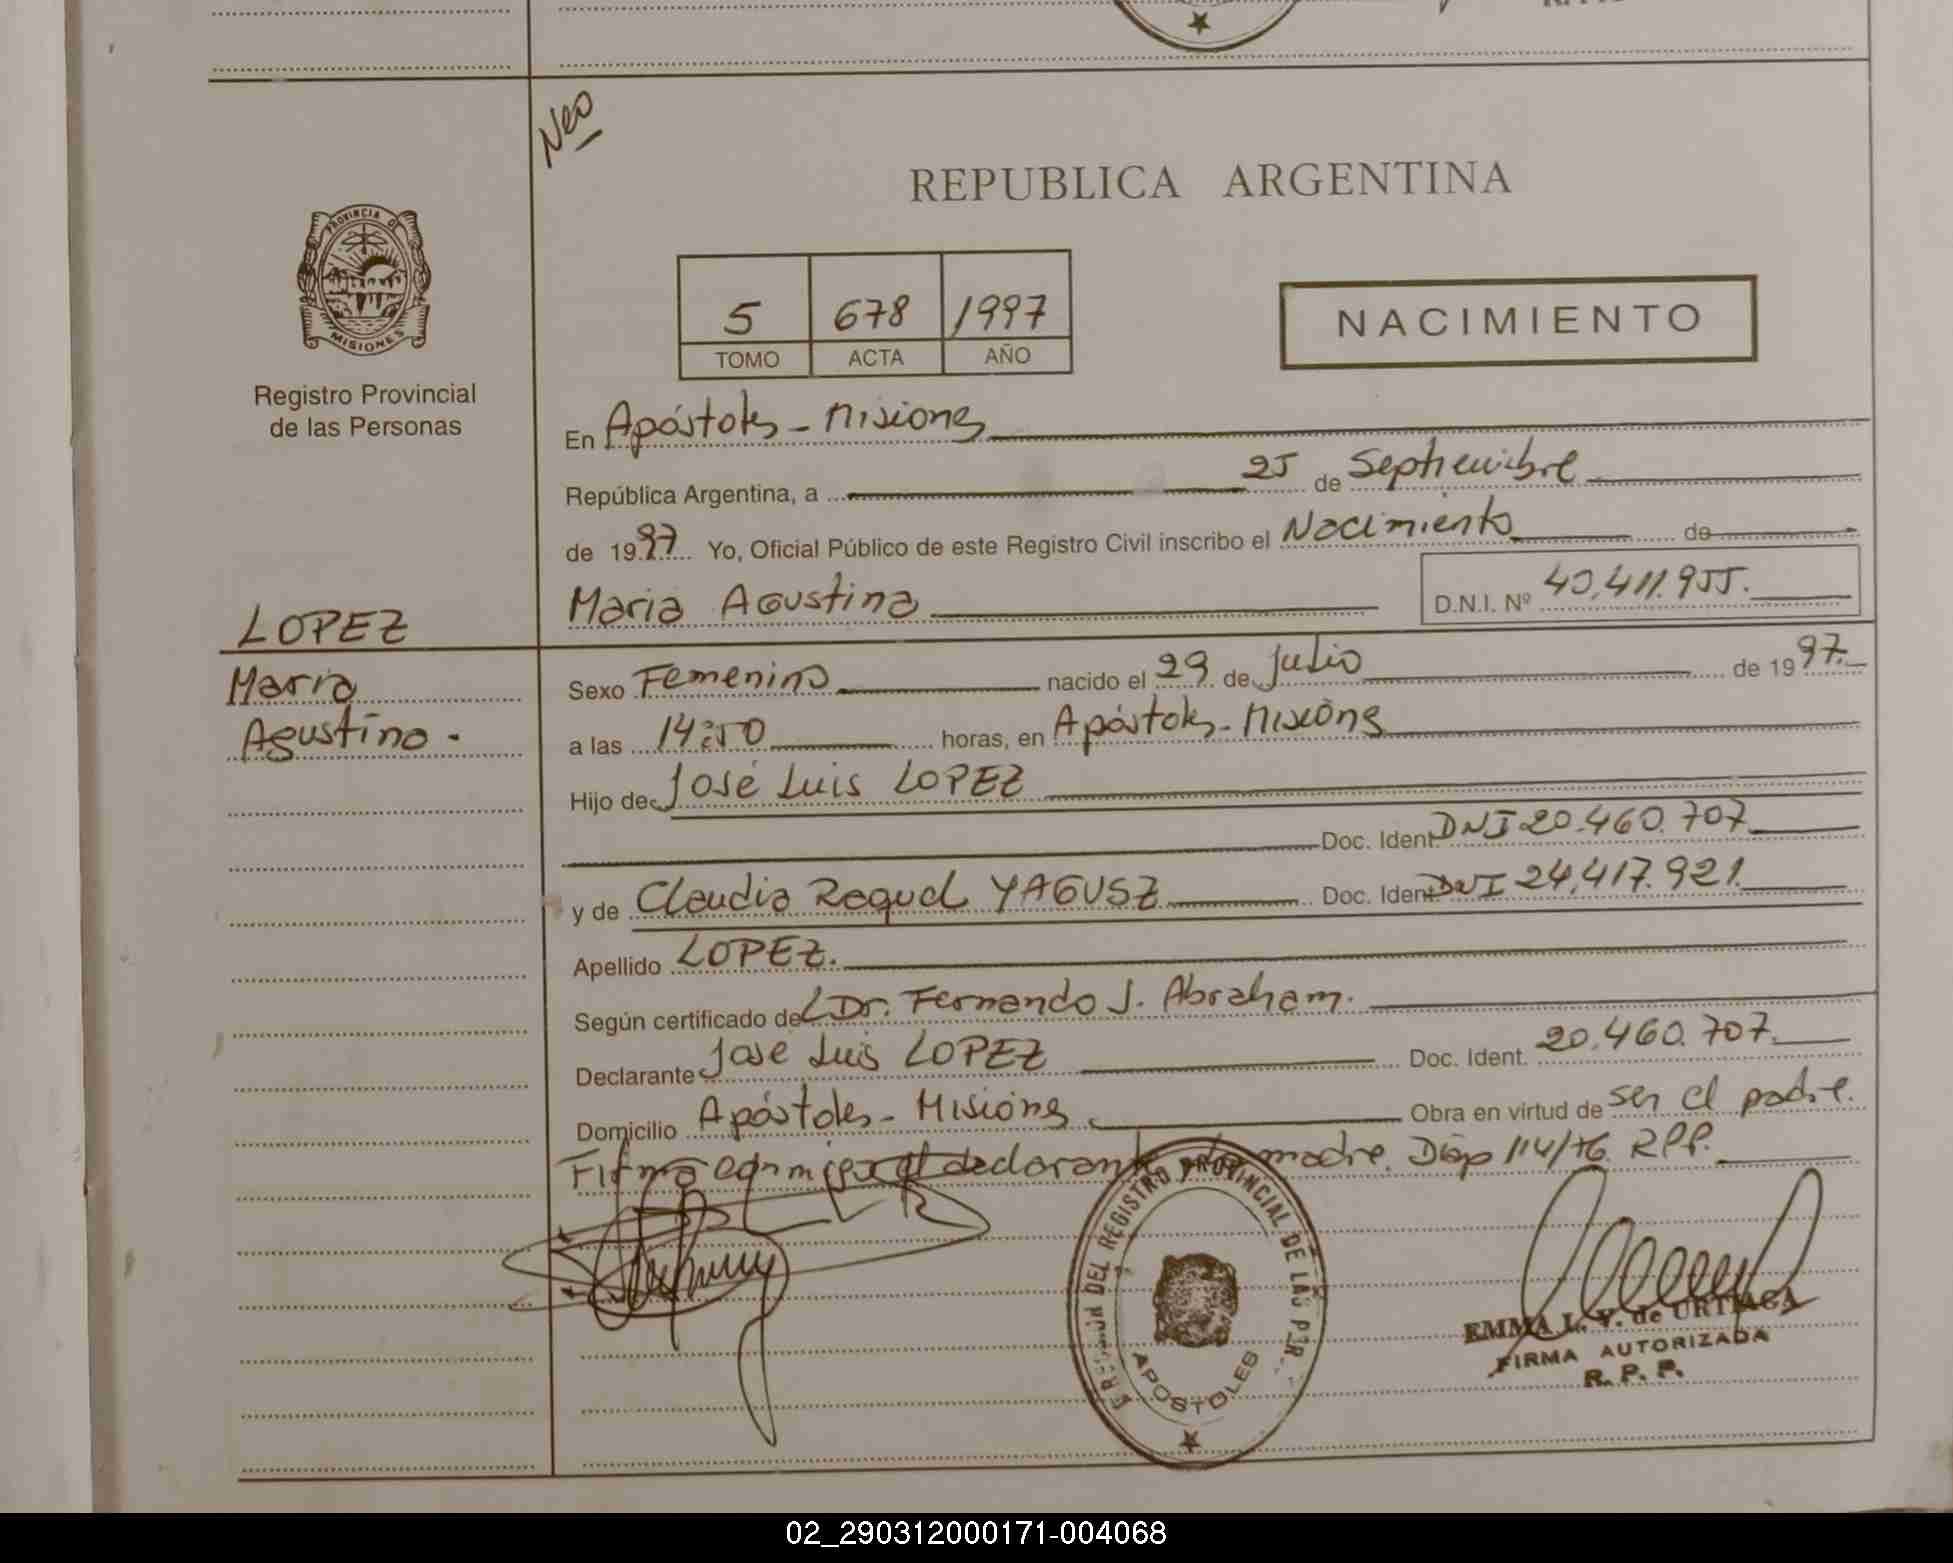 Neo
REPUBLICA ARGENTINA
PROVINCIA DE
MISIONES
5 678 1997
TOMO ACTA AÑO
NACIMIENTO
Registro Provincial
de las Personas
En Apóstoles - Misiones
República Argentina, a 25 de Septiembre
de 1997 Yo, Oficial Público de este Registro Civil inscribo el Nacimiento de
Maria Agustina D.N.I. Nº 40.411.955.
LOPEZ
Maria
Agustina.
Sexo Femenino nacido el 29 de Julio de 1997.
a las 14:50 horas, en Apóstoles - Misiones
Hijo de José Luis LOPEZ
Doc. Ident. DNI 20.460.707
y de Claudia Raquel YAGUSZ Doc. Ident. DNI 24.417.921.
Apellido LOPEZ.
Según certificado del Dr. Fernando J. Abraham.
Declarante Jose Luis LOPEZ Doc. Ident. 20.460.707.
Domicilio Apóstoles - Misiones Obra en virtud de ser el padre.
Firma conmigo el declarante madre. Disp 114/76. RPP.
DEL REGISTRO PROVINCIAL DE LAS PER
APOSTOLES
EMMA L. V. de URTIAGA
FIRMA AUTORIZADA
R. P. P.
02_290312000171-004068